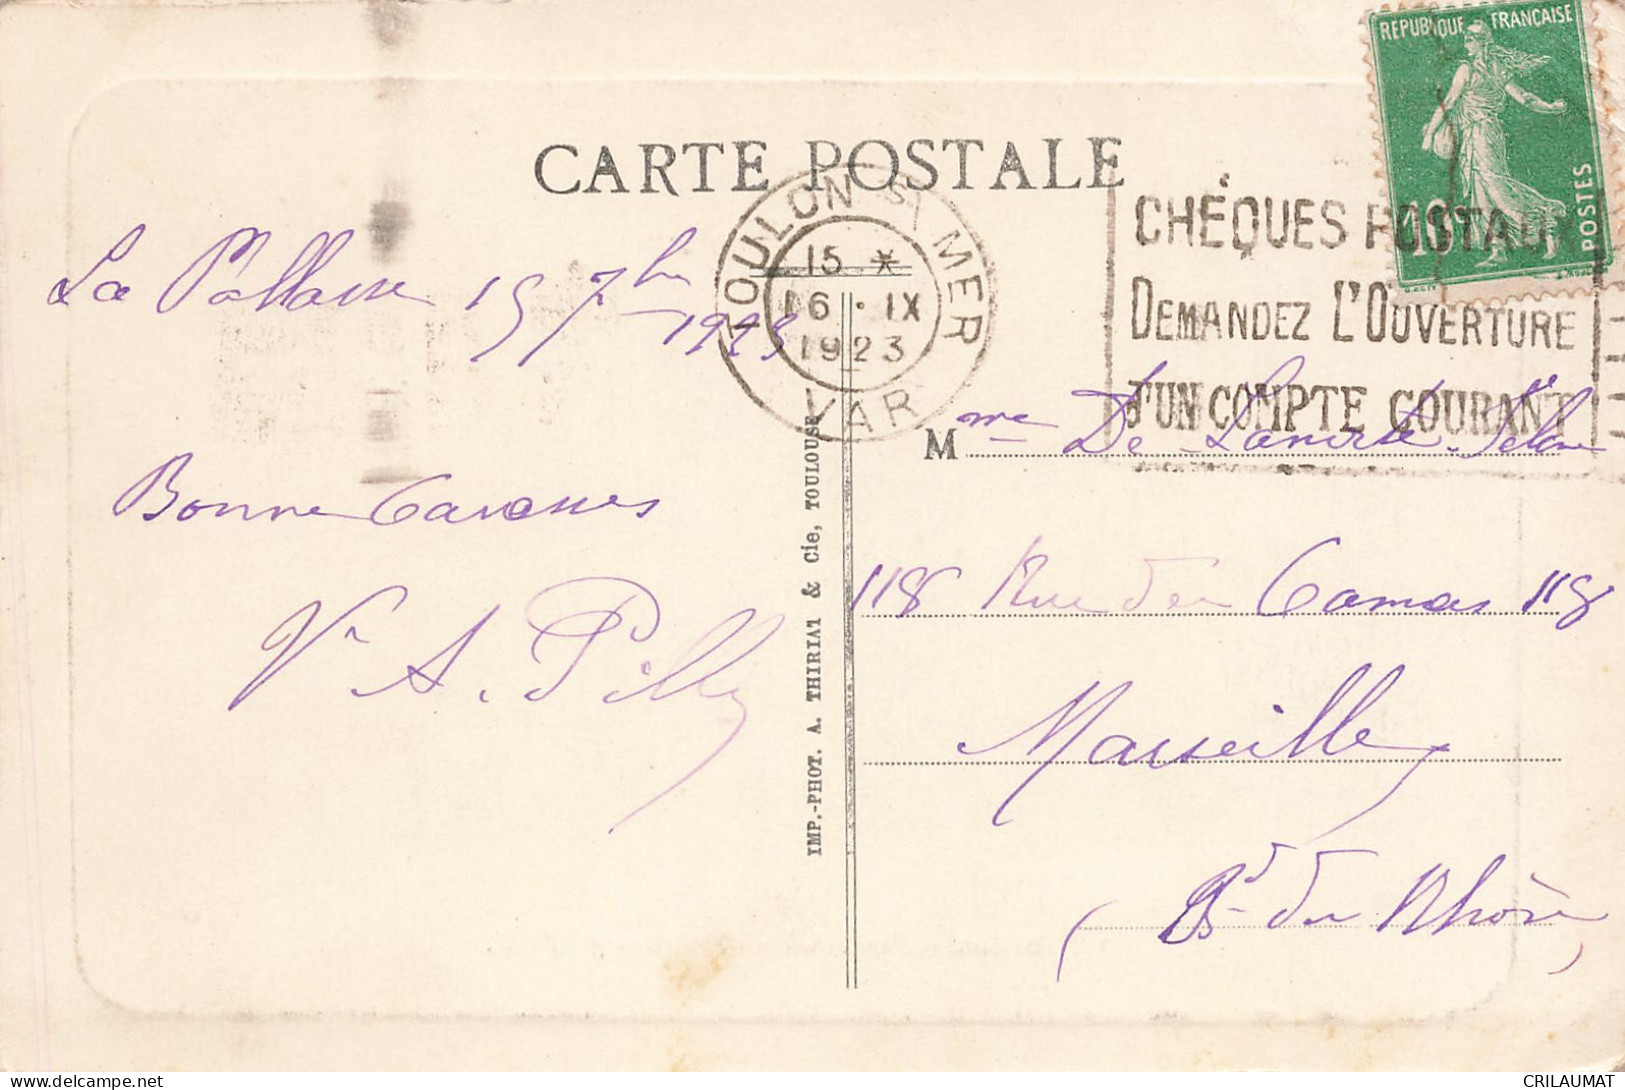 RÉPUBLIQUE FRANÇAISE
POSTES
10
CARTE POSTALE
TOULON S/ MER
15 *
16 · IX
1923
VAR
CHÈQUES POSTAUX
DEMANDEZ L'OUVERTURE
D'UN COMPTE COURANT
La 15 7bre
1923
Bonne Caresses
Vve A. Pilly
Mme De
118 Rue des Camas 118
Marseille
(Bs du Rhône)
IMP.-PHOT. A. THIRIAT & Cie, TOULOUSE
CRILAUMAT